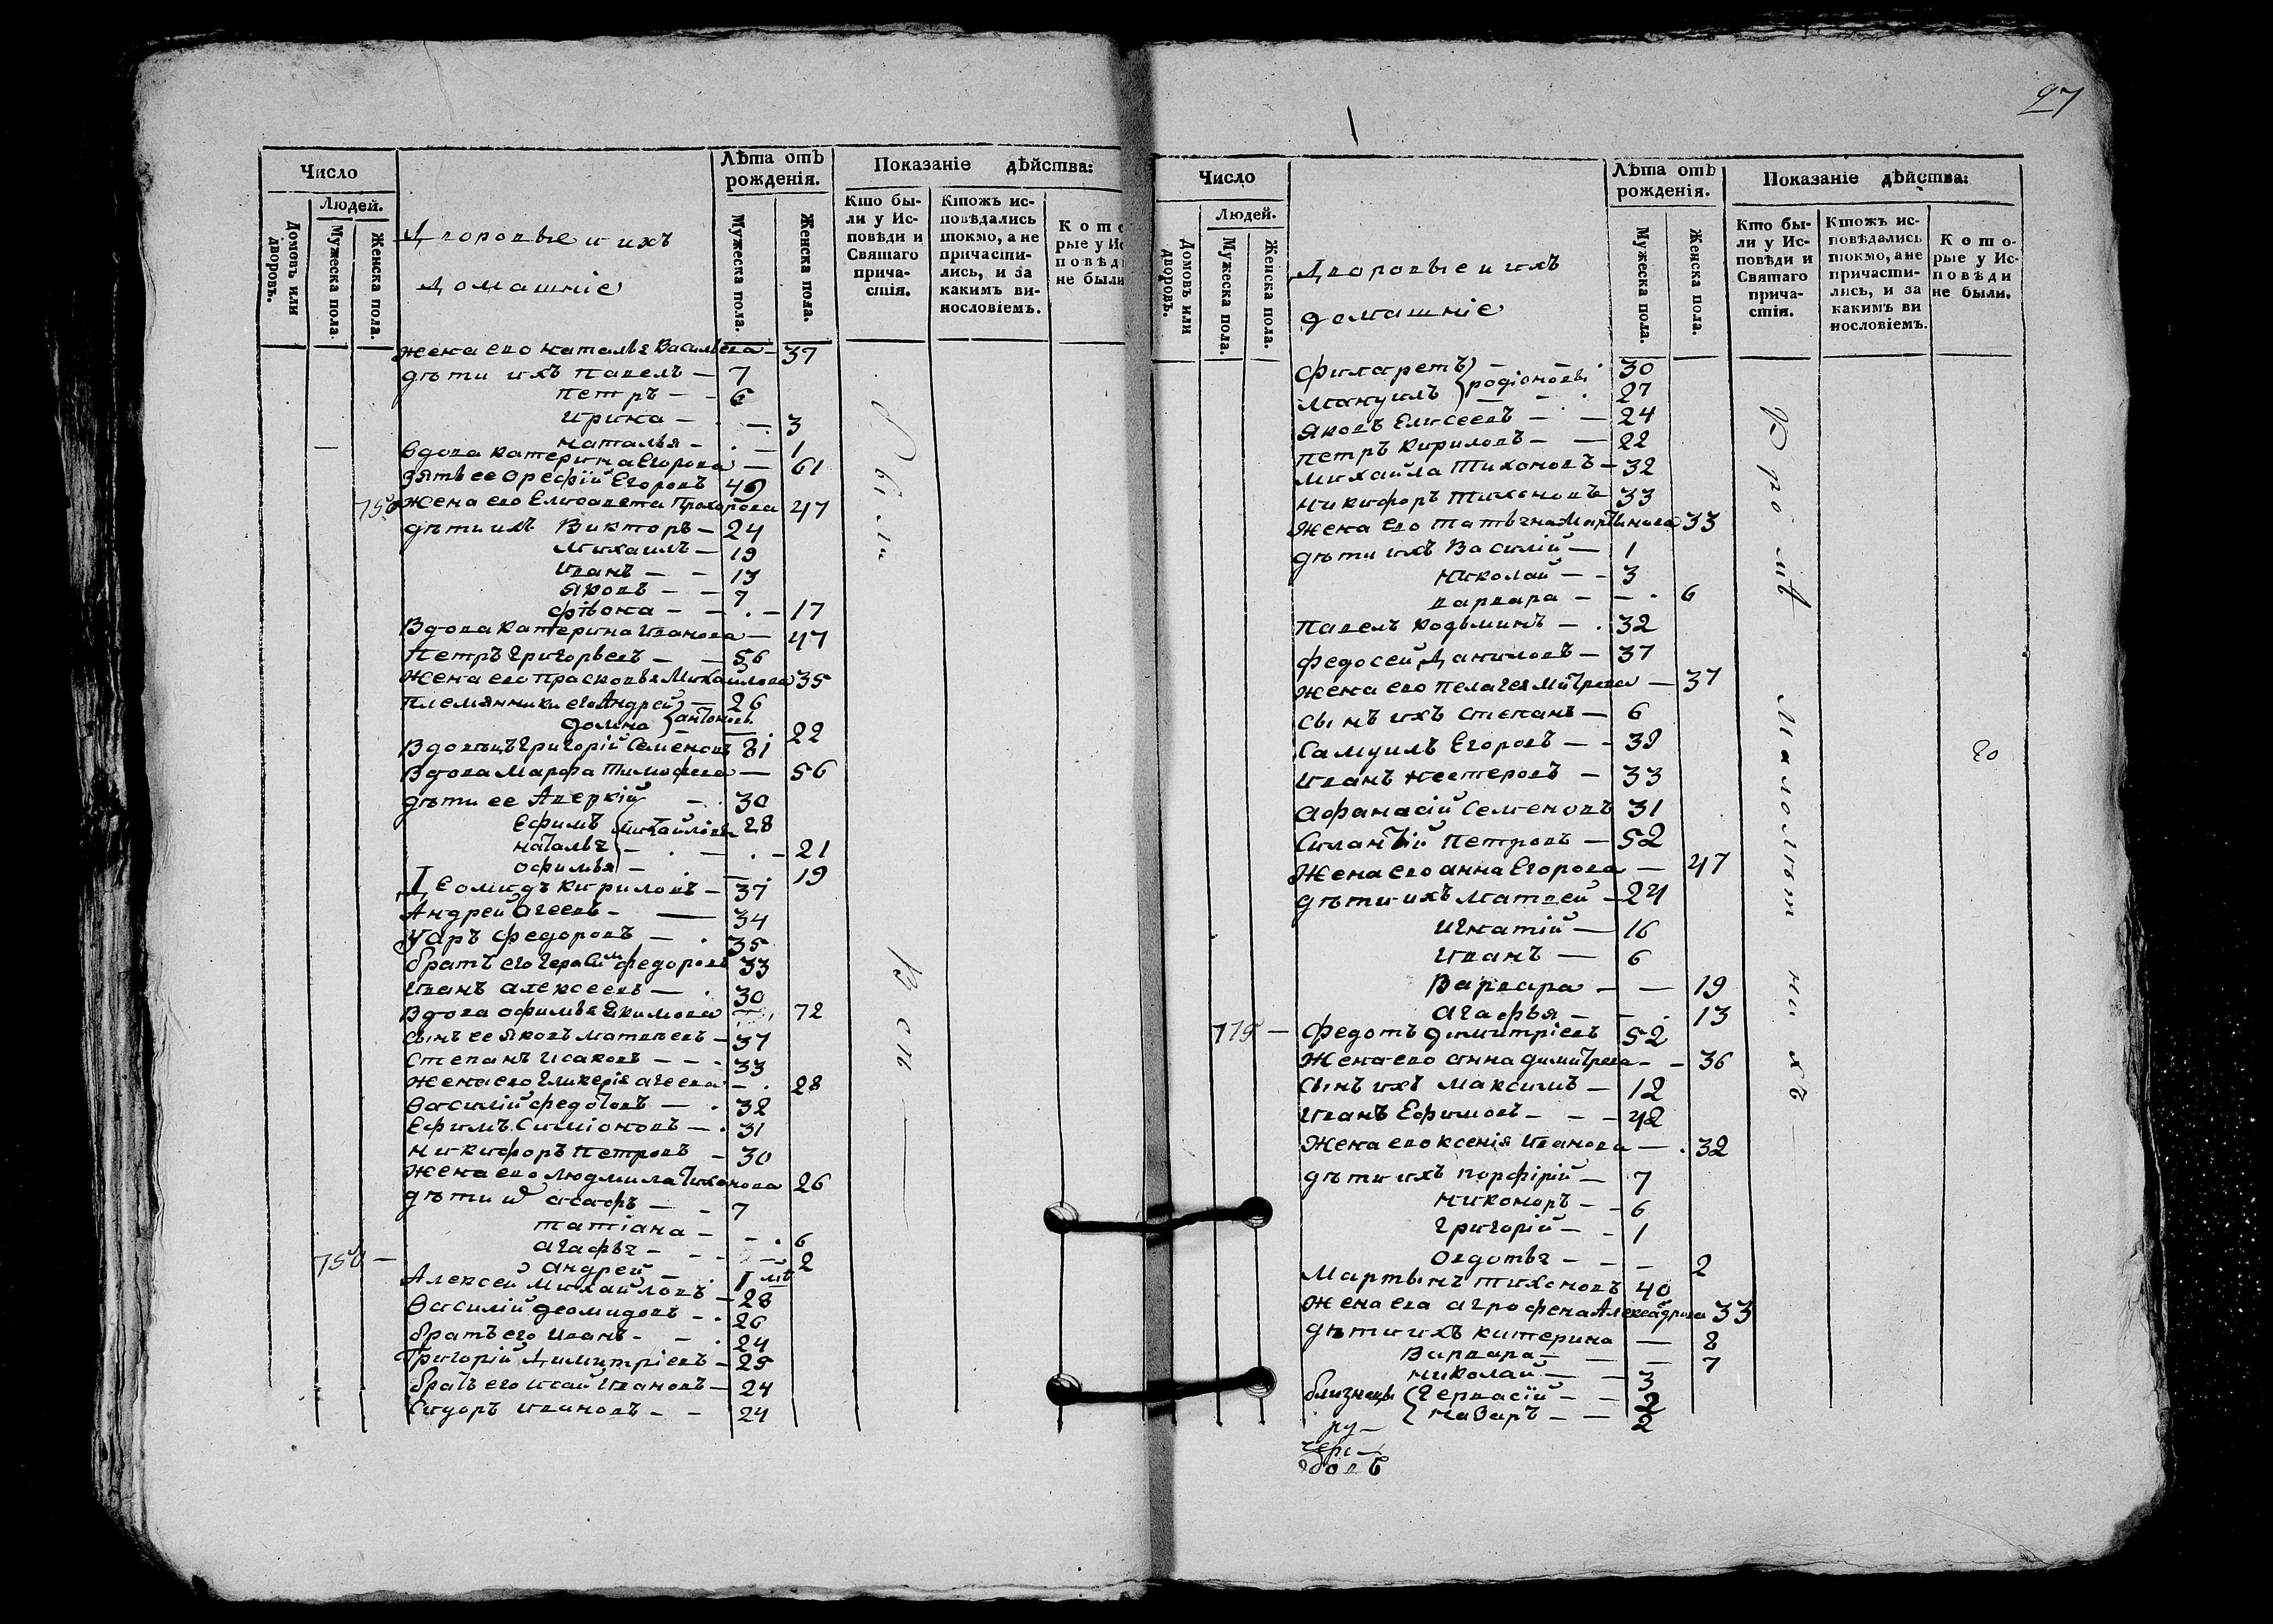 27
Число
Людей.
Домовъ или дворовъ.
Мужеска пола.
Женска пола.
Дворовые и ихъ
Домашніе
Лѣта отъ рожденія.
Мужеска пола.
Женска пола.
Показаніе дѣйства:
Кто бы-
ли у Ис-
повѣди и
Святаго
прича-
стія.
Ктожъ ис-
повѣдались
токмо, а не
причасти-
лись, и за
какимъ ви-
нословіемъ.
Кото
рые у Ис
повѣди
не были
жена его наталья Васильева — 37
дѣти ихъ павелъ — 7
петръ — — 6
ирина — — 3
наталья — . — 1
вдова катерина Егорова — 61
зять ее Орефій Егоровъ 49
жена его Елисавета Прохорова 47
дѣти ихъ Викторъ — 24
михаилъ — 19
иванъ — — 13
яковъ — — 7
фіюна — — . — 17
Вдова катерина иванова — 47
Петръ григорьевъ — — 56
Жена его прасковья Михайлова 35
племянники его Андрей — 26
домна антоновы 22
Вдовецъ григорій Семеновъ 81
Вдова марфа тимофеева — 56
дѣти ее Аверкій — . 30
Ефимъ михайловы 28
наталья — . — . — 21
офимья — . — . 19
Деомидъ кириловъ — 37
Андрей агеевъ — — 34
Уаръ федоровъ — . 35
братъ его герасим федоровъ 33
иванъ алексеевъ — . 30
вдова офимья Якимова — 72
сынъ ее яковъ матвеевъ — 37
степанъ исаковъ — — - 33
жена его гликерія агеева — . 28
василій федотовъ — . 32
Ефимъ Симіоновъ — . 31
никифоръ петровъ — 30
жена его людмила тихонова 26
дѣти асафъ — - 7
татіана — — . 6
агафья — — — 2
750 — андрей — . 1
Алексей михайловъ — 28
василій деомидовъ — . 26
братъ его иванъ — — . 24
Григорій димитріевъ — 25
братъ его исай ивановъ — 24
Сидоръ ивановъ — — 24
Были
Число
Людей.
Домовъ или дворовъ.
Мужеска пола.
Женска пола.
Дворовые и ихъ
домашніе
Лѣта отъ рожденія.
Мужеска пола.
Женска пола.
Показаніе дѣйства:
Кто бы-
ли у Ис-
повѣди и
Святаго
прича-
стія.
Ктожъ ис-
повѣдались
токмо, а не
причасти-
лись, и за
какимъ ви
нословіемъ.
Кото-
рые у Ис-
повѣди
не были.
филаретъ — — . 30
мануилъ родіоновы 27
яковъ Елисеевъ — . — 24
петръ кириловъ — — 22
михайла тихоновъ — 32
никифоръ тихоновъ 33
жена его татьяна Мартынова 33
дѣти ихъ Василій — 1
николай — - 3
варвара — — . 6
павелъ козьминъ — . 32
федосей Даниловъ — 37
жена его пелагея митрева — 37
сынъ ихъ степанъ — 6
Самуилъ Егоровъ — - 39
иванъ нестеровъ — 33
афанасій семеновъ 31
Силантій Петровъ — 52
Жена его анна Егорова — 47
дѣти ихъ матвей — 24
игнатій — 16
иванъ — 6
Варвара — — 19
агафья — — . 13
775 — федотъ димитріевъ 52
жена его анна димитрева — — 36
сынъ ихъ максимъ — 12
иванъ Ефимовъ — — — 42
Жена его ксенія иванова — . 32
дѣти ихъ порфірій — 7
никоноръ — - 6
григорій — - 1
овдотья — — — 2
мартынъ тихоновъ 40
жена ева агрофена Александрова 33
дѣти ихъ катерина — 8
Варвара — — — 7
николай — — 3
близнецы гервасій — — 2
назаръ — — 2
малолѣтнихъ
20